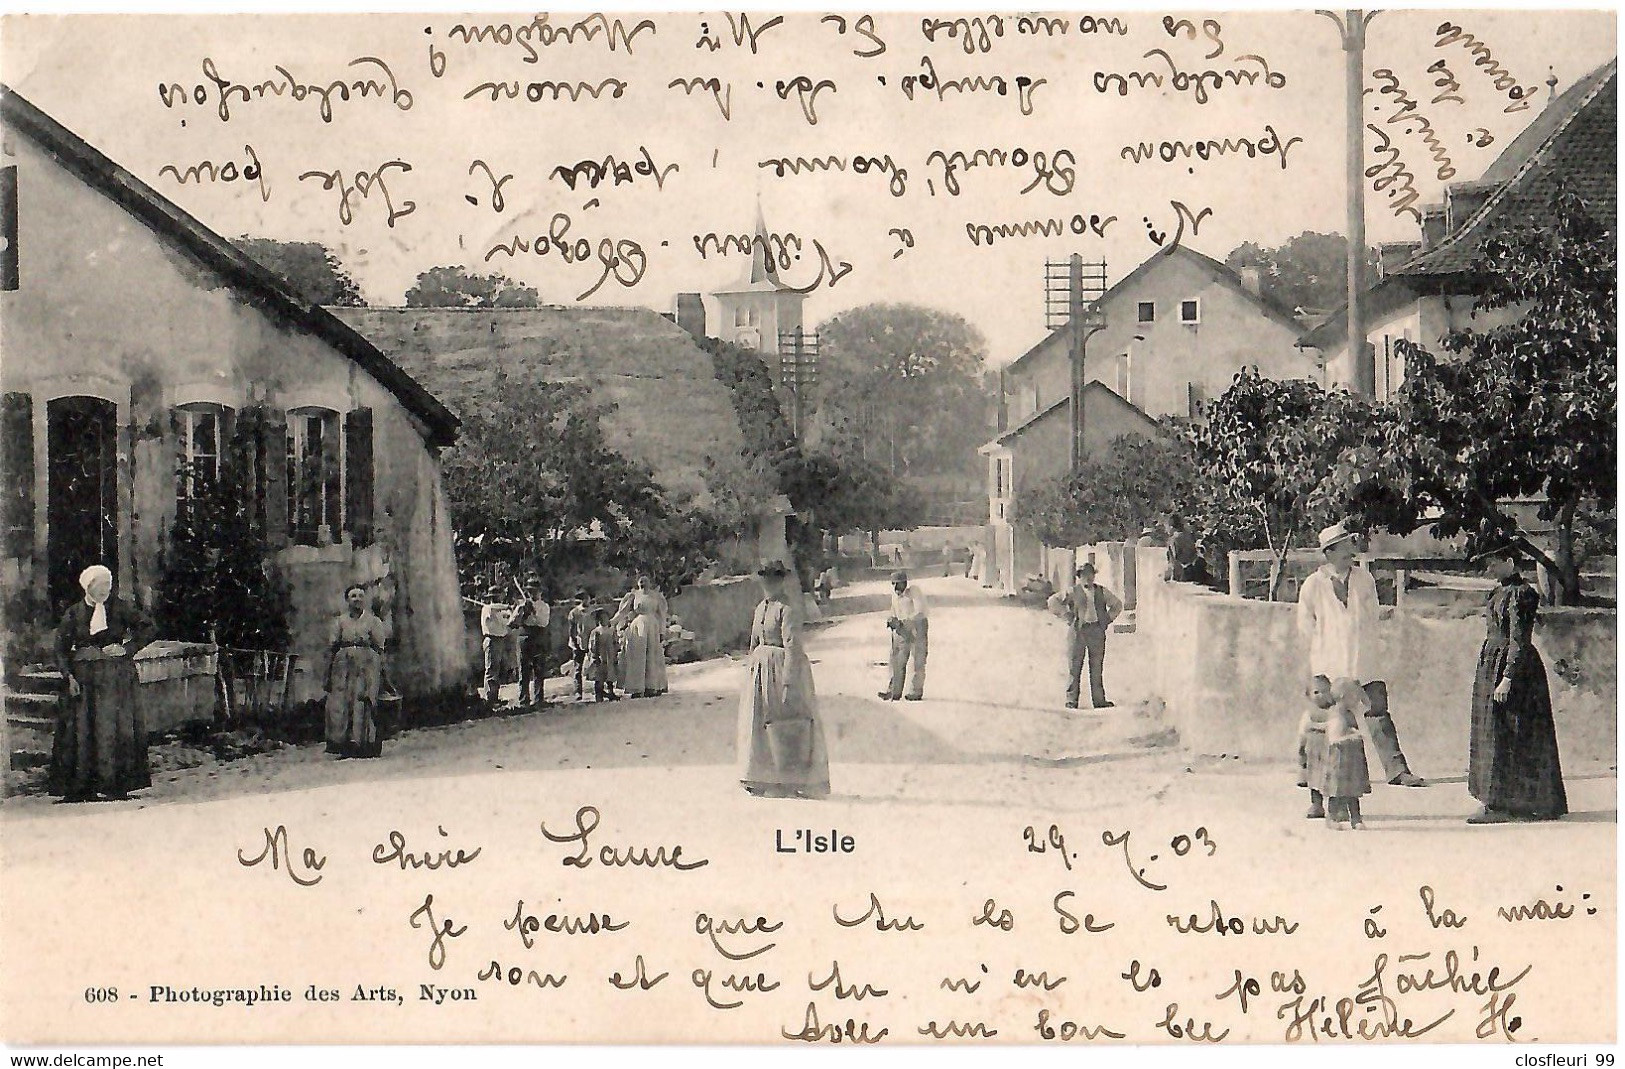 Ma chère Laure
L'Isle
29. 7. 03
Je pense que tu es de retour à la mai:
son et que tu n'en es pas fâchée
608 - Photographie des Arts, Nyon
Avec un bon bec Hélène H.
N: sommes à Villars-Bozon,
pension Bonl'homme, près l'Isle pour
quelques temps. As-tu encore quelquefois
des nouvelles de M:
Mille
amitiés
à tes
parents
delcampe.net
closfleuri 99